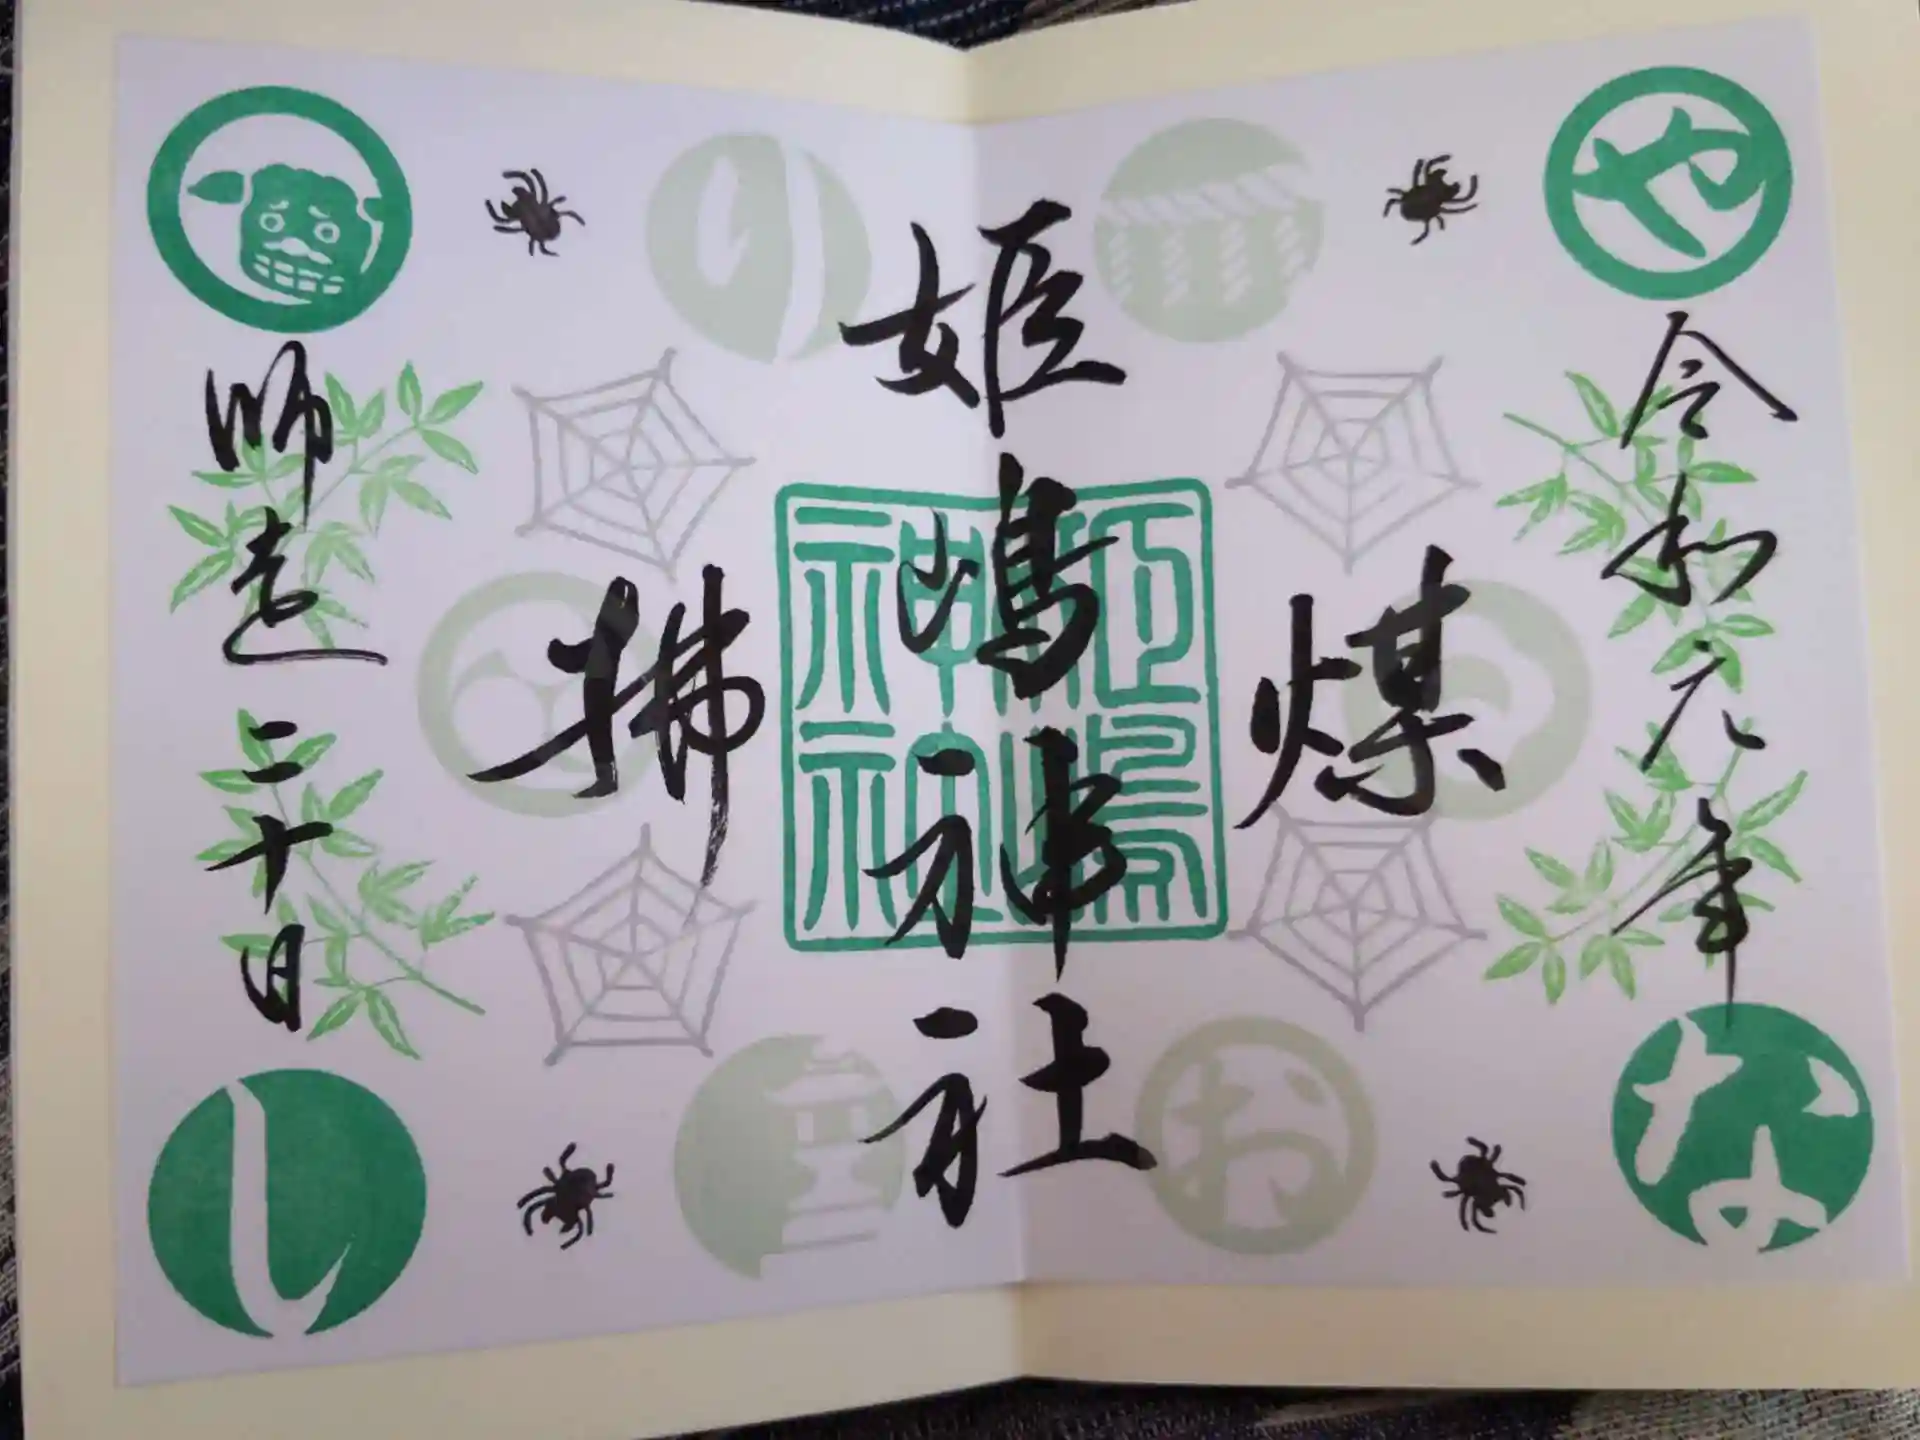 や
令和元年
な
煤
お
姫嶋神社
姫嶋神社
の
拂
師走二十日
し